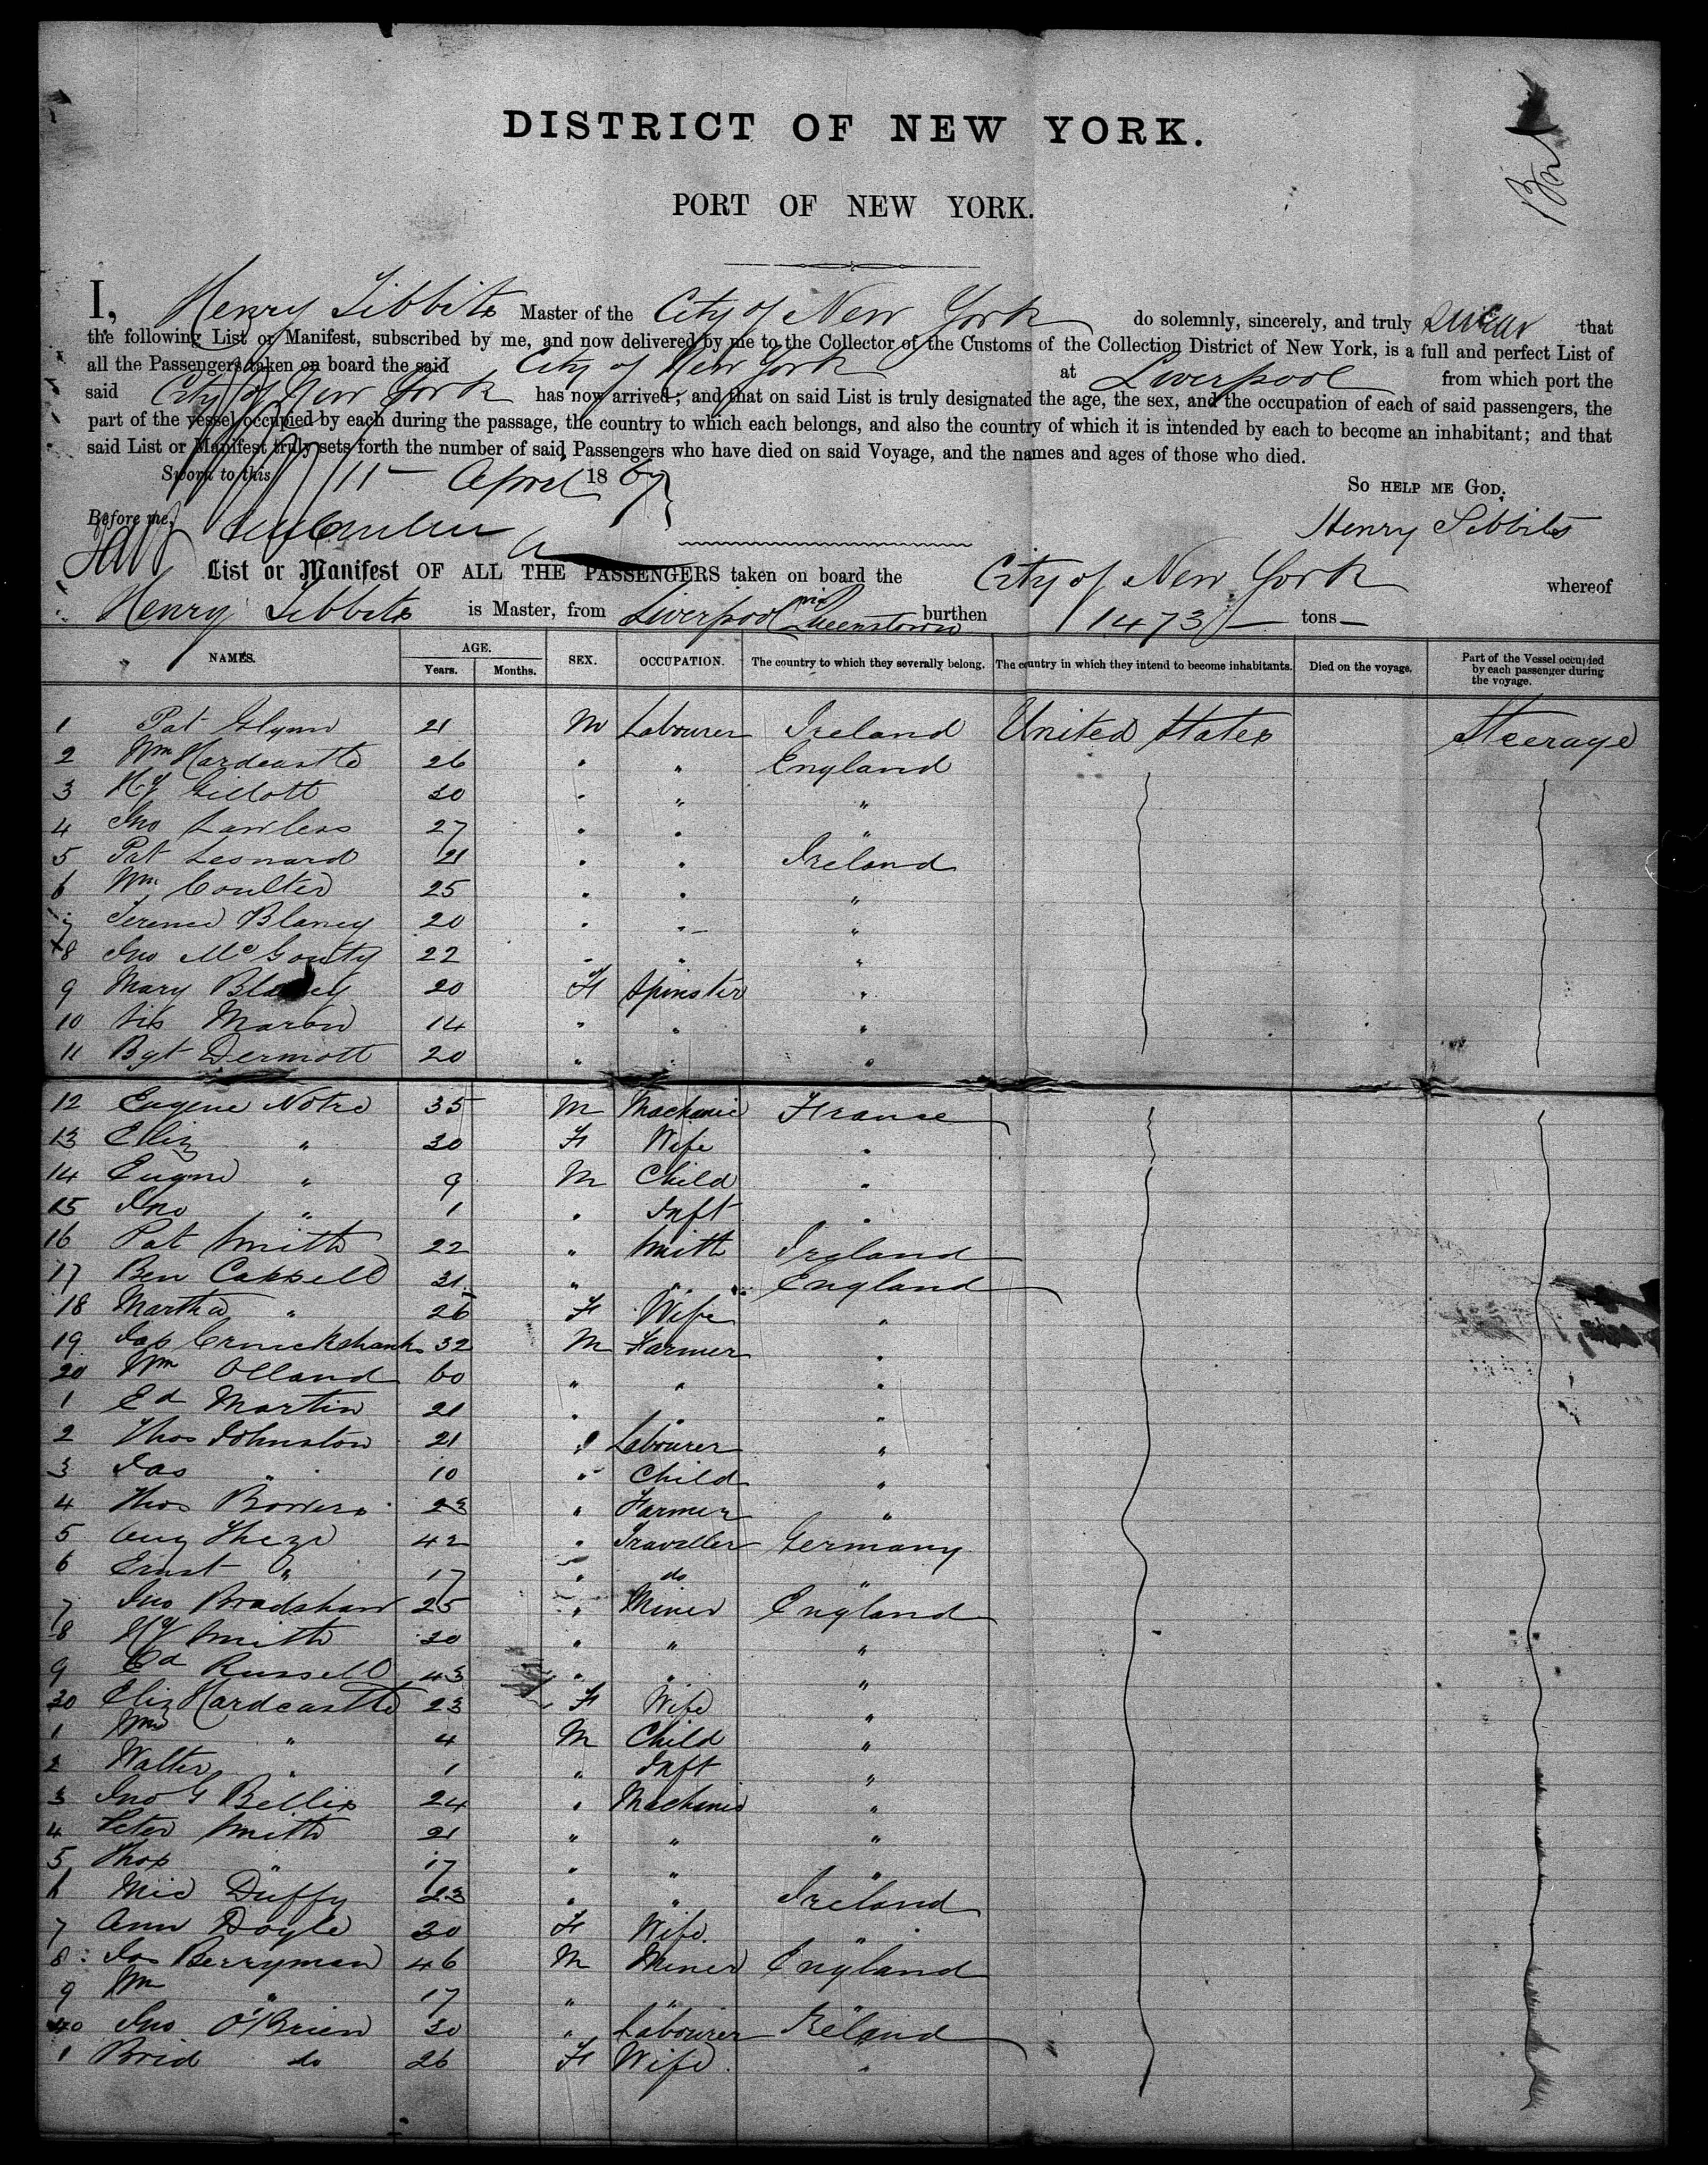 DISTRICT OF NEW YORK.
PORT OF NEW YORK.
I, Henry Tibbits Master of the City of New York do solemnly, sincerely, and truly swear that
the following List or Manifest, subscribed by me, and now delivered by me to the Collector of the Customs of the Collection District of New York, is a full and perfect List of
all the Passengers taken on board the said City of New York at Liverpool from which port the
said City of New York has now arrived; and that on said List is truly designated the age, the sex, and the occupation of each of said passengers, the
part of the vessel occupied by each during the passage, the country to which each belongs, and also the country of which it is intended by each to become an inhabitant; and that
said List or Manifest truly sets forth the number of said Passengers who have died on said Voyage, and the names and ages of those who died.
Sworn to this 11 April 1867
So help me God.
Before me,
Henry Tibbits
List or Manifest OF ALL THE PASSENGERS taken on board the City of New York whereof
Henry Tibbits is Master, from Liverpool via Queenstown burthen 1473 tons
NAMES. AGE. Years. Months. SEX. OCCUPATION. The country to which they severally belong. The country in which they intend to become inhabitants. Died on the voyage. Part of the Vessel occupied by each passenger during the voyage.
1 Pat Glynn 21 M Labourer Ireland United States Steerage
2 Wm Hardcastle 26 " " England
3 Hy Gillott 30 " " "
4 Jno Lawless 27 " " "
5 Pat Leonard 21 " " Ireland
6 Wm Coulter 25 " " "
7 Terence Blaney 20 " " "
8 Jno McGouty 22 " " "
9 Mary Blaney 20 F Spinster "
10 14 " " "
11 Bgt Dermott 20 " " "
12 Eugene Notre 35 M Mechanic France
13 Eliz " 30 F Wife "
14 Eugene " 9 M Child "
15 Jno " 1 " Inft "
16 Pat Smith 22 " Smith Ireland
17 Ben Cappell 31 " " England
18 Martha " 26 F Wife "
19 Jas Cruickshank 32 M Farmer "
20 Wm Olland 60 " " "
1 Ed Martin 21 " " "
2 Thos Johnston 21 " Labourer "
3 Jas " 10 " Child "
4 Thos Bowers 23 " Farmer "
5 Aug 42 " Traveller Germany
6 Ernst " 17 " do "
7 Jno Bradshaw 25 " Miner England
8 Hy Smith 20 " " "
9 Ed Russell 43 " " "
30 Eliz Hardcastle 23 F Wife "
1 Wm " 4 M Child "
2 Walter " 1 " Inft "
3 Jno G Bellis 24 " Mechanic "
4 Peter Smith 21 " " "
5 Thos " 17 " " "
6 Mic Duffy 23 " " Ireland
7 Ann Doyle 30 F Wife "
8 Jas Berryman 46 M Miner England
9 Wm " 17 " " "
40 Jno O'Brien 30 " Labourer Ireland
1 Brid do 26 F Wife "